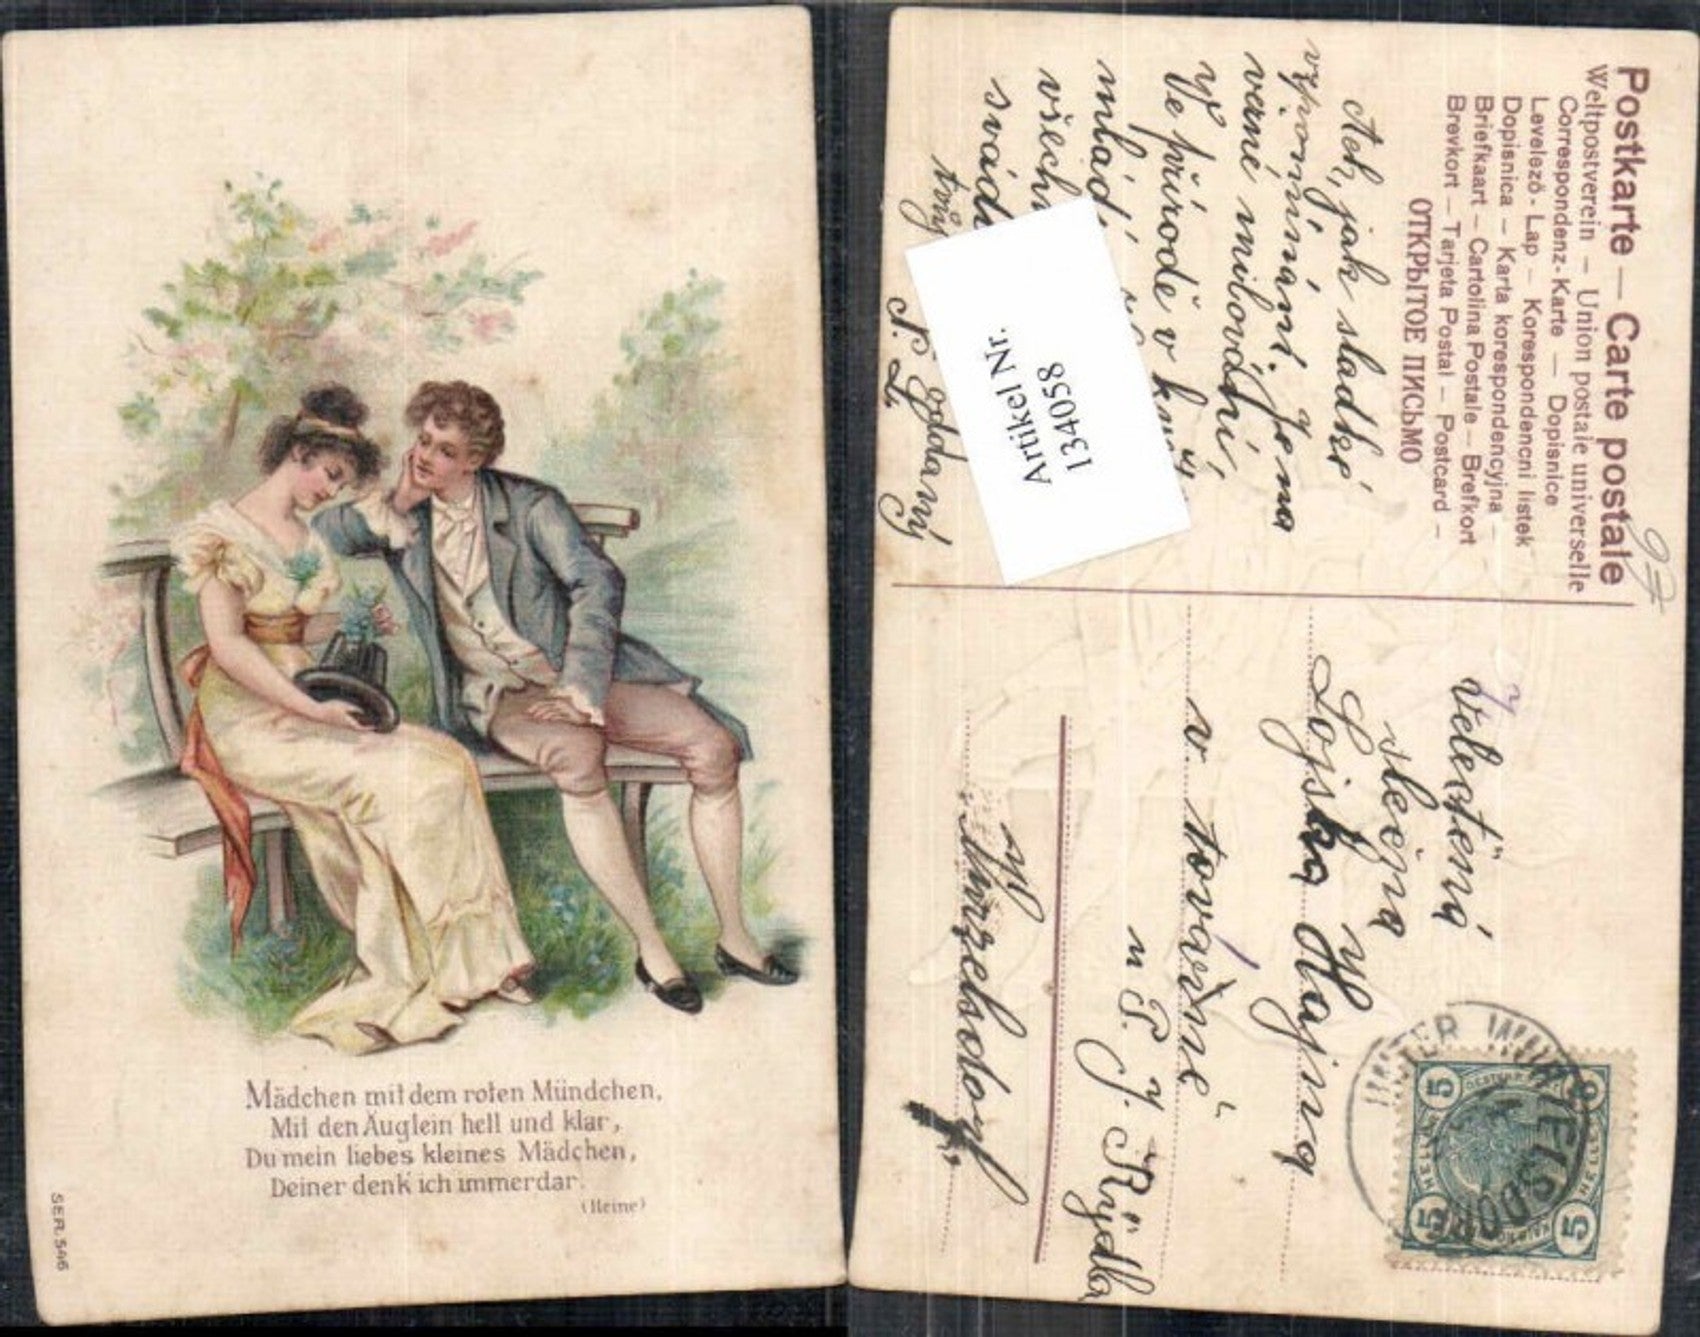 Mädchen mit dem roten Mündchen,
Mit den Äuglein hell und klar,
Du mein liebes kleines Mädchen,
Deiner denk ich immerdar.
(Heine)
SER. 546
Postkarte — Carte postale
Weltpostverein — Union postale universelle
Correspondenz-Karte — Dopisnice
Levelező-Lap — Korespondencni listek
Dopisnica — Karta korespondencyjna —
Briefkaart — Cartolina Postale — Brefkort
Brevkort — Tarjeta Postal — Postcard —
ОТКРЫТОЕ ПИСЬМО
Ach, jak sladké
vzpomínání. Je na
vané milování,
Ve přírodě v
mládí
všech
svád
S. L.
Artikel Nr.
134058
Velectěná
slečna
Lojska Hajná
v továrně
u P. J. Rýdla
Wurzelsdorf
5 5
5 5
UNTER WURZELSDORF